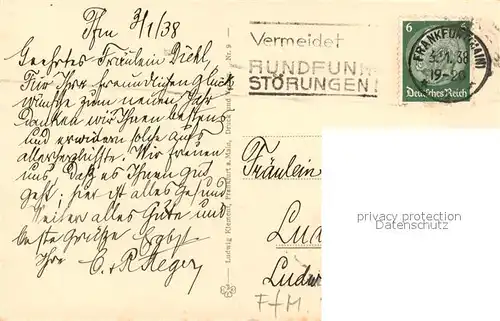 Ffm 3/1/38
Geehrtes Fräulein Diehl,
Für Ihre freundlichen Glück
wünsche zum neuen Jahr
danken wir Ihnen bestens
und erwidern solche aufs
allerherzlichste. Wir freuen
uns, daß es Ihnen gut
geht; hier ist alles gesund
Weiter alles Gute und
beste Grüße
Ihre C. + R. Heger
Ludwig Klement, Frankfurt a. Main, Druck und Nr. 9
Vermeidet
RUNDFUNK
STÖRUNGEN!
6
Deutsches Reich
FRANKFURT (MAIN)
3.1.38
19-20
Fräulein
Lud
Ludw
FfM.
privacy protection
Datenschutz